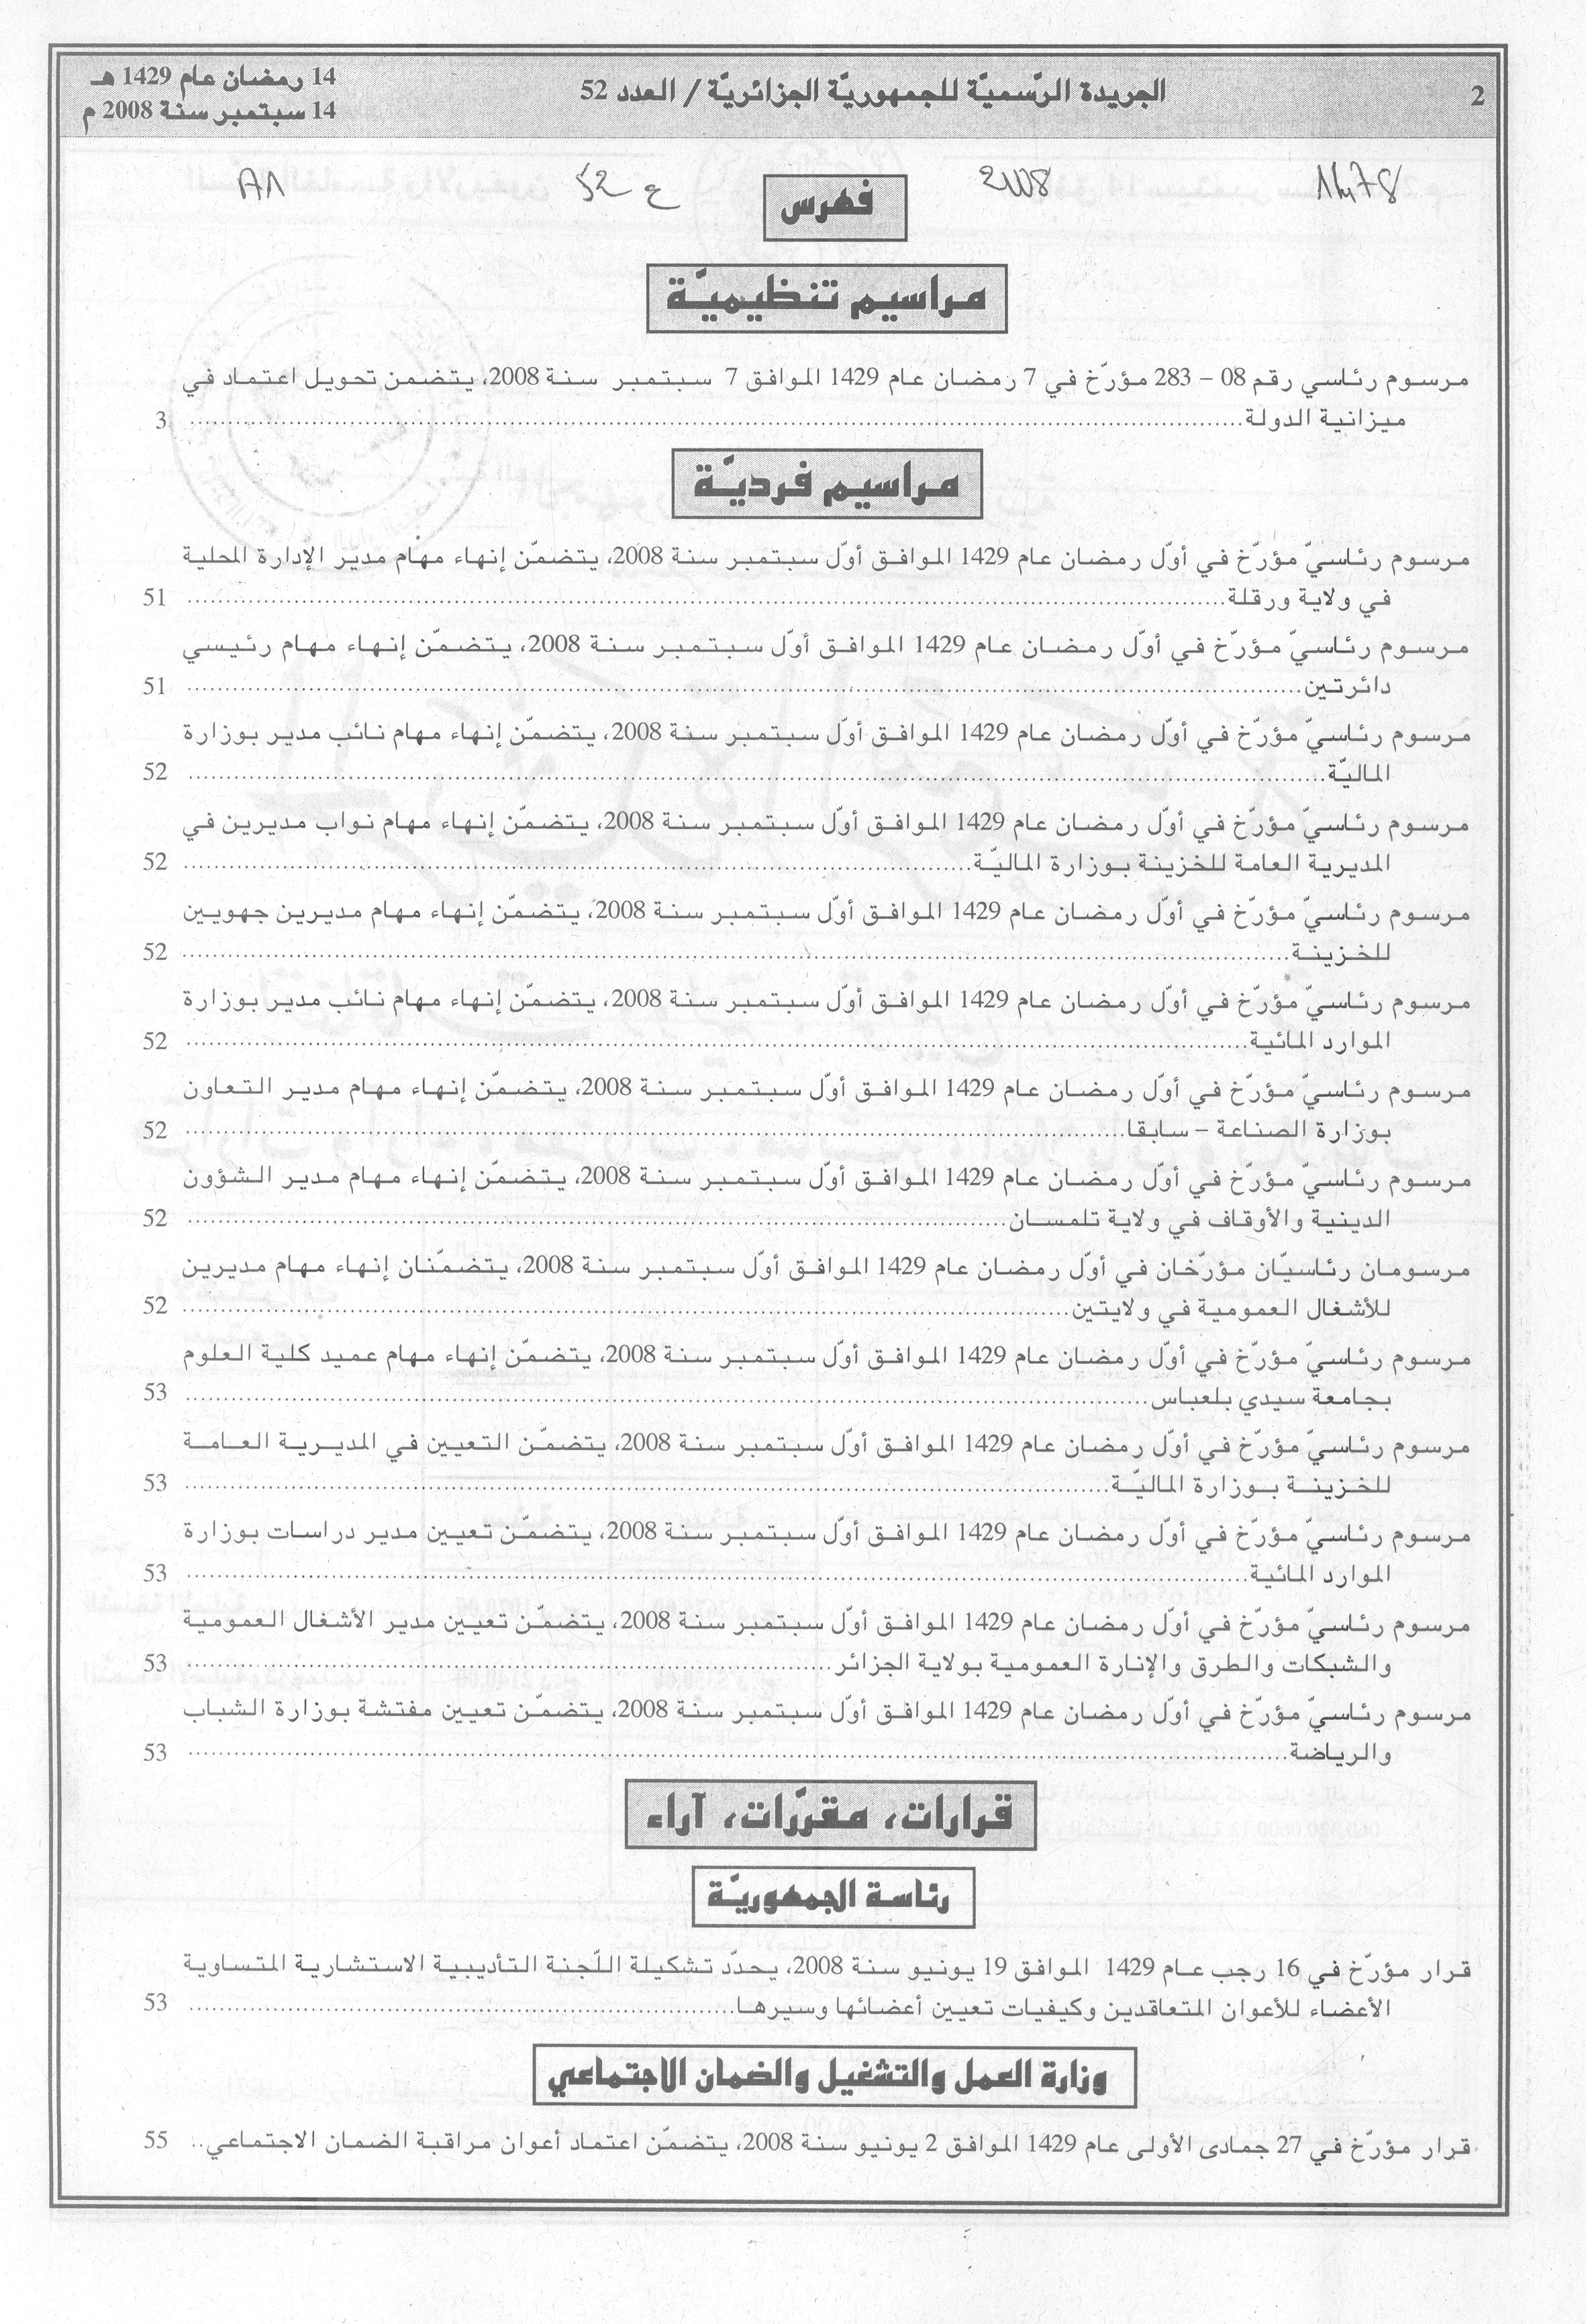 2
الجريدة الرّسميّة للجمهوريّة الجزائريّة / العدد 52
14 رمضان عام 1429 هـ
14 سبتمبر سنة 2008 م
2008
ع 52
A1
فهرس
مراسيم تنظيميّة
مرسوم رئاسي رقم 08 – 283 مؤرّخ في 7 رمضان عام 1429 الموافق 7 سبتمبر سنة 2008، يتضمن تحويل اعتماد في
ميزانية الدولة........ 3
مراسيم فرديّة
مرسوم رئاسيّ مؤرّخ في أوّل رمضان عام 1429 الموافق أوّل سبتمبر سنة 2008، يتضمّن إنهاء مهام مدير الإدارة المحلية
في ولاية ورقلة........ 51
مرسوم رئاسيّ مؤرّخ في أوّل رمضان عام 1429 الموافق أوّل سبتمبر سنة 2008، يتضمّن إنهاء مهام رئيسي
دائرتين........ 51
مرسوم رئاسيّ مؤرّخ في أوّل رمضان عام 1429 الموافق أوّل سبتمبر سنة 2008، يتضمّن إنهاء مهام نائب مدير بوزارة
الماليّة........ 52
مرسوم رئاسيّ مؤرّخ في أوّل رمضان عام 1429 الموافق أوّل سبتمبر سنة 2008، يتضمّن إنهاء مهام نواب مديرين في
المديرية العامة للخزينة بوزارة الماليّة........ 52
مرسوم رئاسيّ مؤرّخ في أوّل رمضان عام 1429 الموافق أوّل سبتمبر سنة 2008، يتضمّن إنهاء مهام مديرين جهويين
للخزينة........ 52
مرسوم رئاسيّ مؤرّخ في أوّل رمضان عام 1429 الموافق أوّل سبتمبر سنة 2008، يتضمّن إنهاء مهام نائب مدير بوزارة
الموارد المائية........ 52
مرسوم رئاسيّ مؤرّخ في أوّل رمضان عام 1429 الموافق أوّل سبتمبر سنة 2008، يتضمّن إنهاء مهام مدير التعاون
بوزارة الصناعة – سابقا........ 52
مرسوم رئاسيّ مؤرّخ في أوّل رمضان عام 1429 الموافق أوّل سبتمبر سنة 2008، يتضمّن إنهاء مهام مدير الشؤون
الدينية والأوقاف في ولاية تلمسان........ 52
مرسومان رئاسيّان مؤرّخان في أوّل رمضان عام 1429 الموافق أوّل سبتمبر سنة 2008، يتضمّنان إنهاء مهام مديرين
للأشغال العمومية في ولايتين........ 52
مرسوم رئاسيّ مؤرّخ في أوّل رمضان عام 1429 الموافق أوّل سبتمبر سنة 2008، يتضمّن إنهاء مهام عميد كلية العلوم
بجامعة سيدي بلعباس........ 53
مرسوم رئاسيّ مؤرّخ في أوّل رمضان عام 1429 الموافق أوّل سبتمبر سنة 2008، يتضمّن التعيين في المديرية العامة
للخزينة بوزارة الماليّة........ 53
مرسوم رئاسيّ مؤرّخ في أوّل رمضان عام 1429 الموافق أوّل سبتمبر سنة 2008، يتضمّن تعيين مدير دراسات بوزارة
الموارد المائية........ 53
مرسوم رئاسيّ مؤرّخ في أوّل رمضان عام 1429 الموافق أوّل سبتمبر سنة 2008، يتضمّن تعيين مدير الأشغال العمومية
والشبكات والطرق والإنارة العمومية بولاية الجزائر........ 53
مرسوم رئاسيّ مؤرّخ في أوّل رمضان عام 1429 الموافق أوّل سبتمبر سنة 2008، يتضمّن تعيين مفتشة بوزارة الشباب
والرياضة........ 53
قرارات، مقرّرات، آراء
رئاسة الجمهوريّة
قرار مؤرّخ في 16 رجب عام 1429 الموافق 19 يونيو سنة 2008، يحدّد تشكيلة اللّجنة التأديبية الاستشارية المتساوية
الأعضاء للأعوان المتعاقدين وكيفيات تعيين أعضائها وسيرها........ 53
وزارة العمل والتشغيل والضمان الاجتماعي
قرار مؤرّخ في 27 جمادى الأولى عام 1429 الموافق 2 يونيو سنة 2008، يتضمّن اعتماد أعوان مراقبة الضمان الاجتماعي.. 55